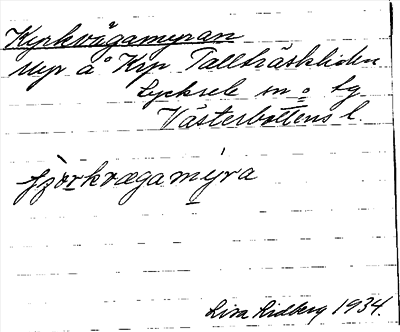 Kyrkvägamyran
Myr å Krp Tallträskliden
Lycksele sn o tg
Västerbottens l.
fjörkvægamyra
Lisa Lidberg 1934.